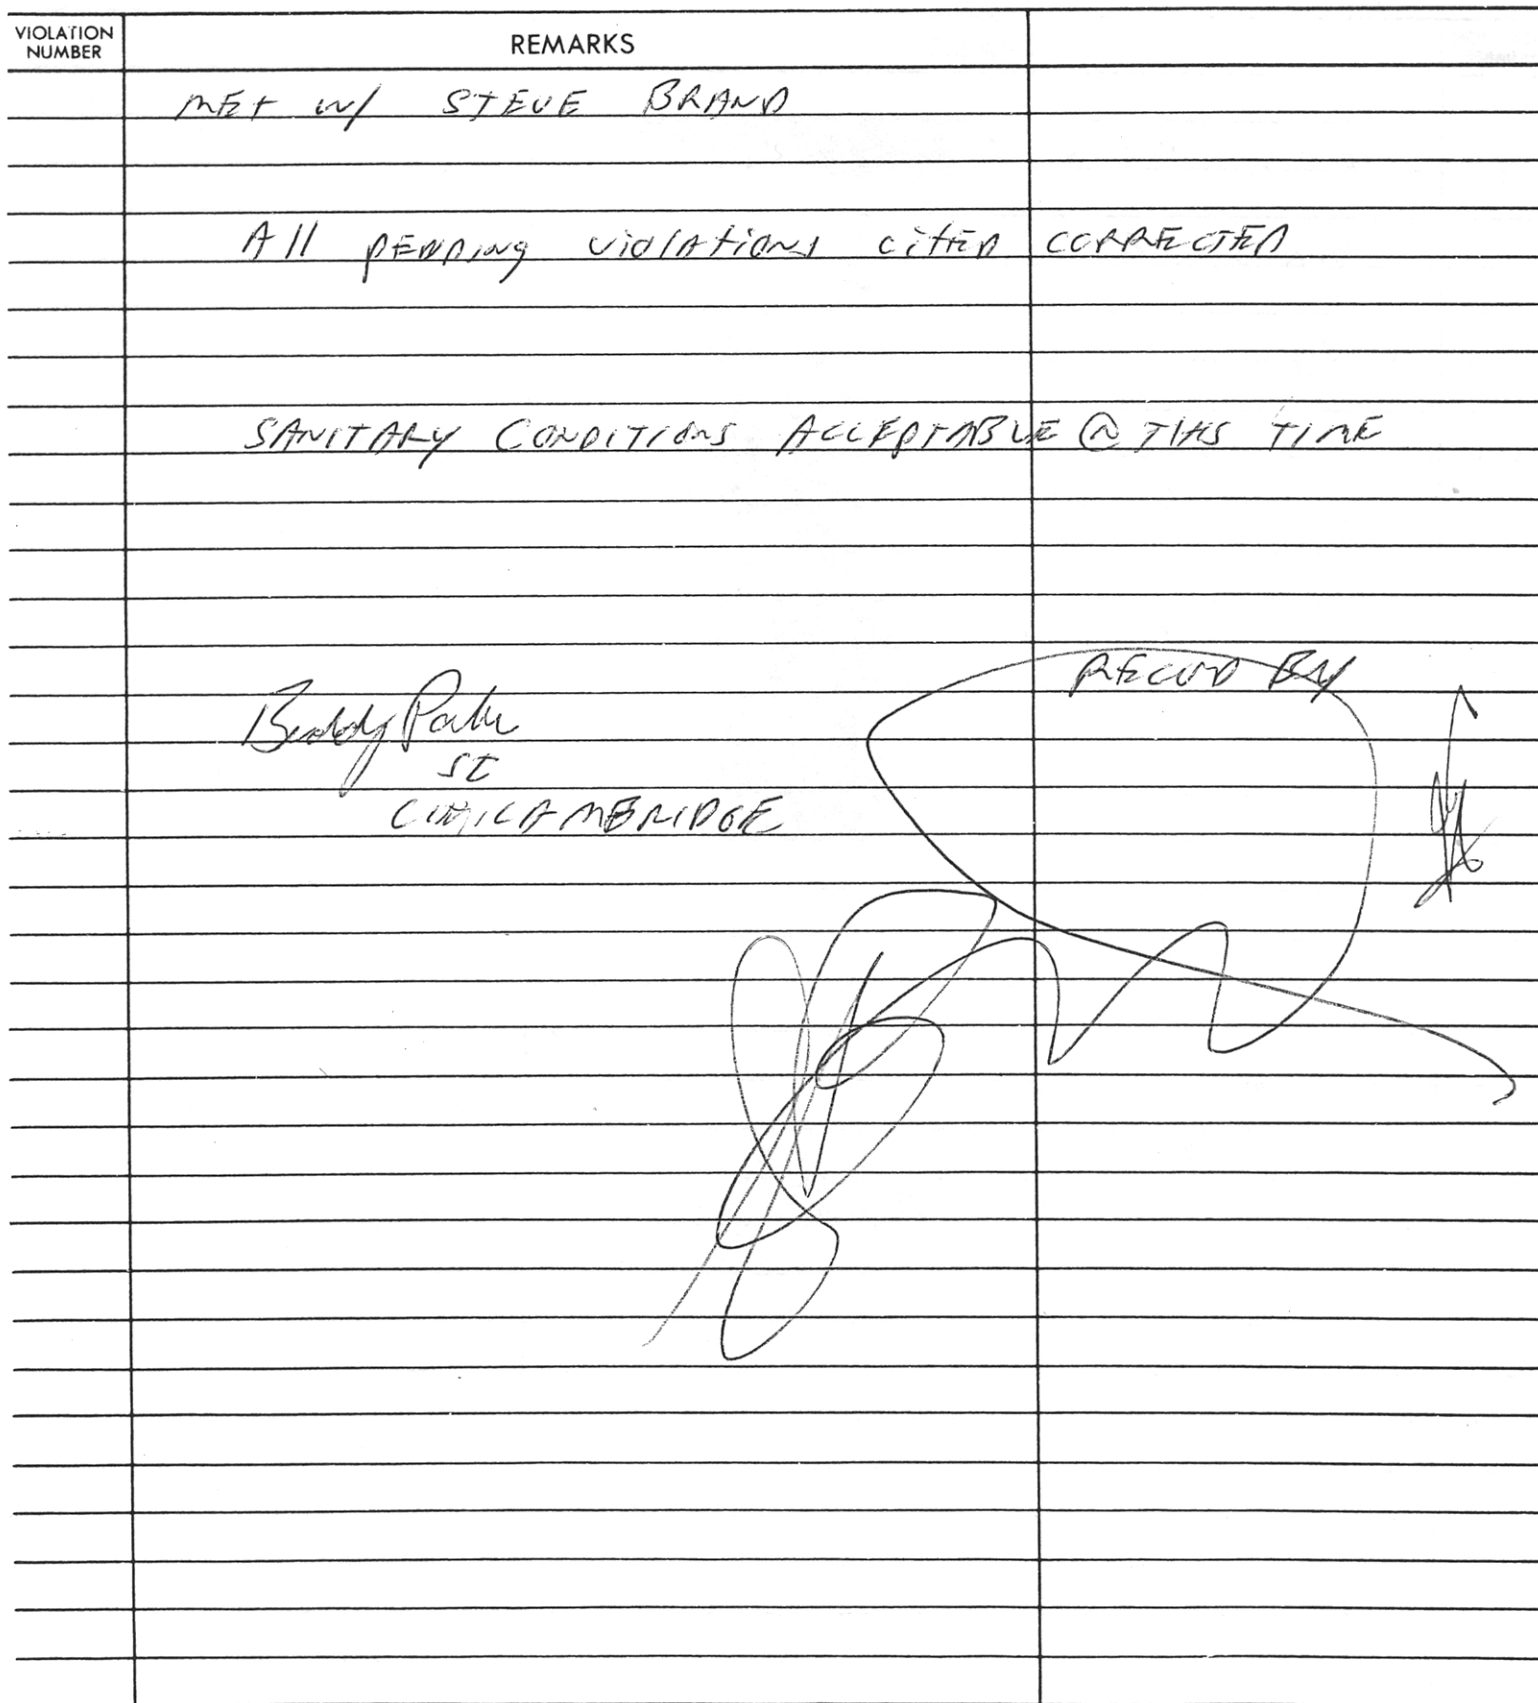 VIOLATION
NUMBER
REMARKS
MET W/ STEVE BRAND
All PENDING violAtions citED CORRECTED
SANITARY CONDITIONS ACCEPTABLE @ THIS TIME
RECVD BY
Buddy
SI